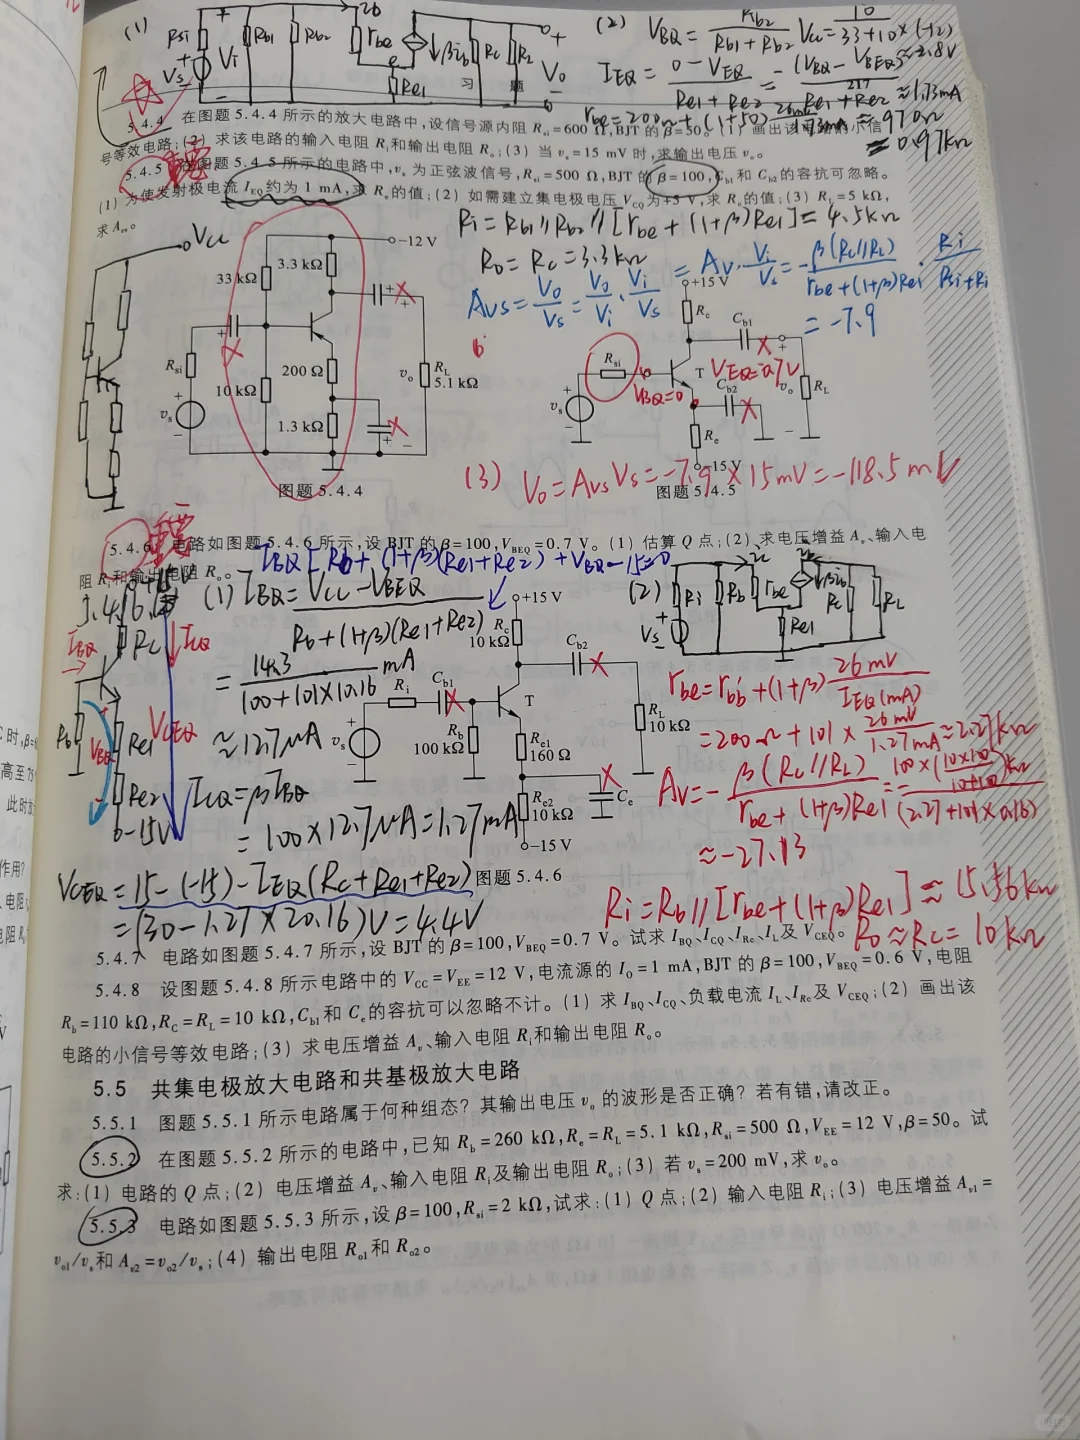 (1)
Rsi
Vs
Vi
Rb1
Rb2
ib
rbe
e
βib
Rc
RL
Vo
Re1
(2) VBQ = Rb2 / (Rb1 + Rb2) Vcc = 10 / (33+10) × (-12) ≈ -2.8V
IEQ = (0 - VEQ) / (Re1 + Re2) = -(VBQ - VBEQ) / (Re1 + Re2) ≈ 1.73mA
rbe = 200Ω + (1+50) 26mV / 1.73mA ≈ 970Ω
= 0.97kΩ
习 题
5.4.4 在图题 5.4.4 所示的放大电路中,设信号源内阻 Rsi=600 Ω,BJT 的 β=50。(1) 画出该电路的小信
号等效电路;(2) 求该电路的输入电阻 Ri和输出电阻 Ro;(3) 当 vs=15 mV 时,求输出电压 vo。
重要
5.4.5 在图题 5.4.5 所示的电路中,vs 为正弦波信号,Rsi=500 Ω,BJT 的 β=100,Cb1和 Cb2的容抗可忽略。
(1) 为使发射极电流 IEQ约为 1 mA,求 Re的值;(2) 如需建立集电极电压 VCQ为+5 V,求 Rc的值;(3) RL=5 kΩ,
求 Avs。
Ri = Rb1//Rb2//[rbe + (1+β)Re1] = 4.5kΩ
Ro = Rc = 3.3kΩ
Avs = Vo/Vs = Vo/Vi · Vi/Vs = Av · Vi/Vs = -β(Rc//RL) / (rbe + (1+β)Re1) · Ri / (Rsi + Ri)
= -7.9
Vcc
-12 V
33 kΩ
3.3 kΩ
Rsi
vs
10 kΩ
200 Ω
1.3 kΩ
vo
RL
5.1 kΩ
图题 5.4.4
+15 V
Rc
Cb1
Rsi
T
VEQ=-0.7V
VBQ=0
Cb2
vo
RL
vs
Re
-15 V
图题 5.4.5
(3) Vo = Avs Vs = -7.9 × 15mV = -118.5mV
重要
5.4.6 电路如图题 5.4.6 所示,设 BJT 的 β=100,VBEQ=0.7 V。(1) 估算 Q 点;(2) 求电压增益 Av、输入电
阻 Ri和输出电阻 Ro。
IBQ[Rb + (1+β)(Re1+Re2)] + VBEQ - 15 = 0
(1) IBQ = (Vcc - VBEQ) / (Rb + (1+β)(Re1+Re2))
= 14.3 / (100 + 101×10.16) mA
≈ 12.7μA
ICQ = βIBQ
= 100×12.7μA = 1.27mA
VCEQ = 15-(-15) - IEQ(Rc+Re1+Re2)
= (30 - 1.27×20.16)V = 4.4V
+15V
Rc
ICQ
IBQ
Rb
VBEQ
VCEQ
Re1
Re2
-15V
+15 V
Rc
10 kΩ
Cb2
Ri
Cb1
T
vs
Rb
100 kΩ
Re1
160 Ω
RL
10 kΩ
Re2
10 kΩ
Ce
-15 V
图题 5.4.6
(2)
Ri
Vs
Rb
rbe
βib
Rc
RL
Re1
rbe = rbb' + (1+β) 26mV / IEQ(mA)
= 200Ω + 101 × 26mV / 1.27mA ≈ 2.27kΩ
Av = - β(Rc//RL) / (rbe + (1+β)Re1) = - 100×(10×10 / (10+10))kΩ / (2.27+101×0.16)
≈ -27.13
Ri = Rb//[rbe + (1+β)Re1] ≈ 15.56kΩ
Ro ≈ Rc = 10kΩ
5.4.7 电路如图题 5.4.7 所示,设 BJT 的 β=100,VBEQ=0.7 V。试求 IBQ、ICQ、IRc、IL及 VCEQ。
5.4.8 设图题 5.4.8 所示电路中的 VCC=VEE=12 V,电流源的 IO=1 mA,BJT 的 β=100,VBEQ=0.6 V,电阻
Rb=110 kΩ,RC=RL=10 kΩ,Cb1和 Ce的容抗可以忽略不计。(1) 求 IBQ、ICQ、负载电流 IL、IRc及 VCEQ;(2) 画出该
电路的小信号等效电路;(3) 求电压增益 Av、输入电阻 Ri和输出电阻 Ro。
5.5 共集电极放大电路和共基极放大电路
5.5.1 图题 5.5.1 所示电路属于何种组态?其输出电压 vo 的波形是否正确?若有错,请改正。
5.5.2 在图题 5.5.2 所示的电路中,已知 Rb=260 kΩ,Re=RL=5.1 kΩ,Rsi=500 Ω,VEE=12 V,β=50。试
求:(1) 电路的 Q 点;(2) 电压增益 Av、输入电阻 Ri及输出电阻 Ro;(3) 若 vs=200 mV,求 vo。
5.5.3 电路如图题 5.5.3 所示,设 β=100,Rsi=2 kΩ,试求:(1) Q 点;(2) 输入电阻 Ri;(3) 电压增益 Av1=
vo1/vs和 Av2=vo2/vs;(4) 输出电阻 Ro1和 Ro2。